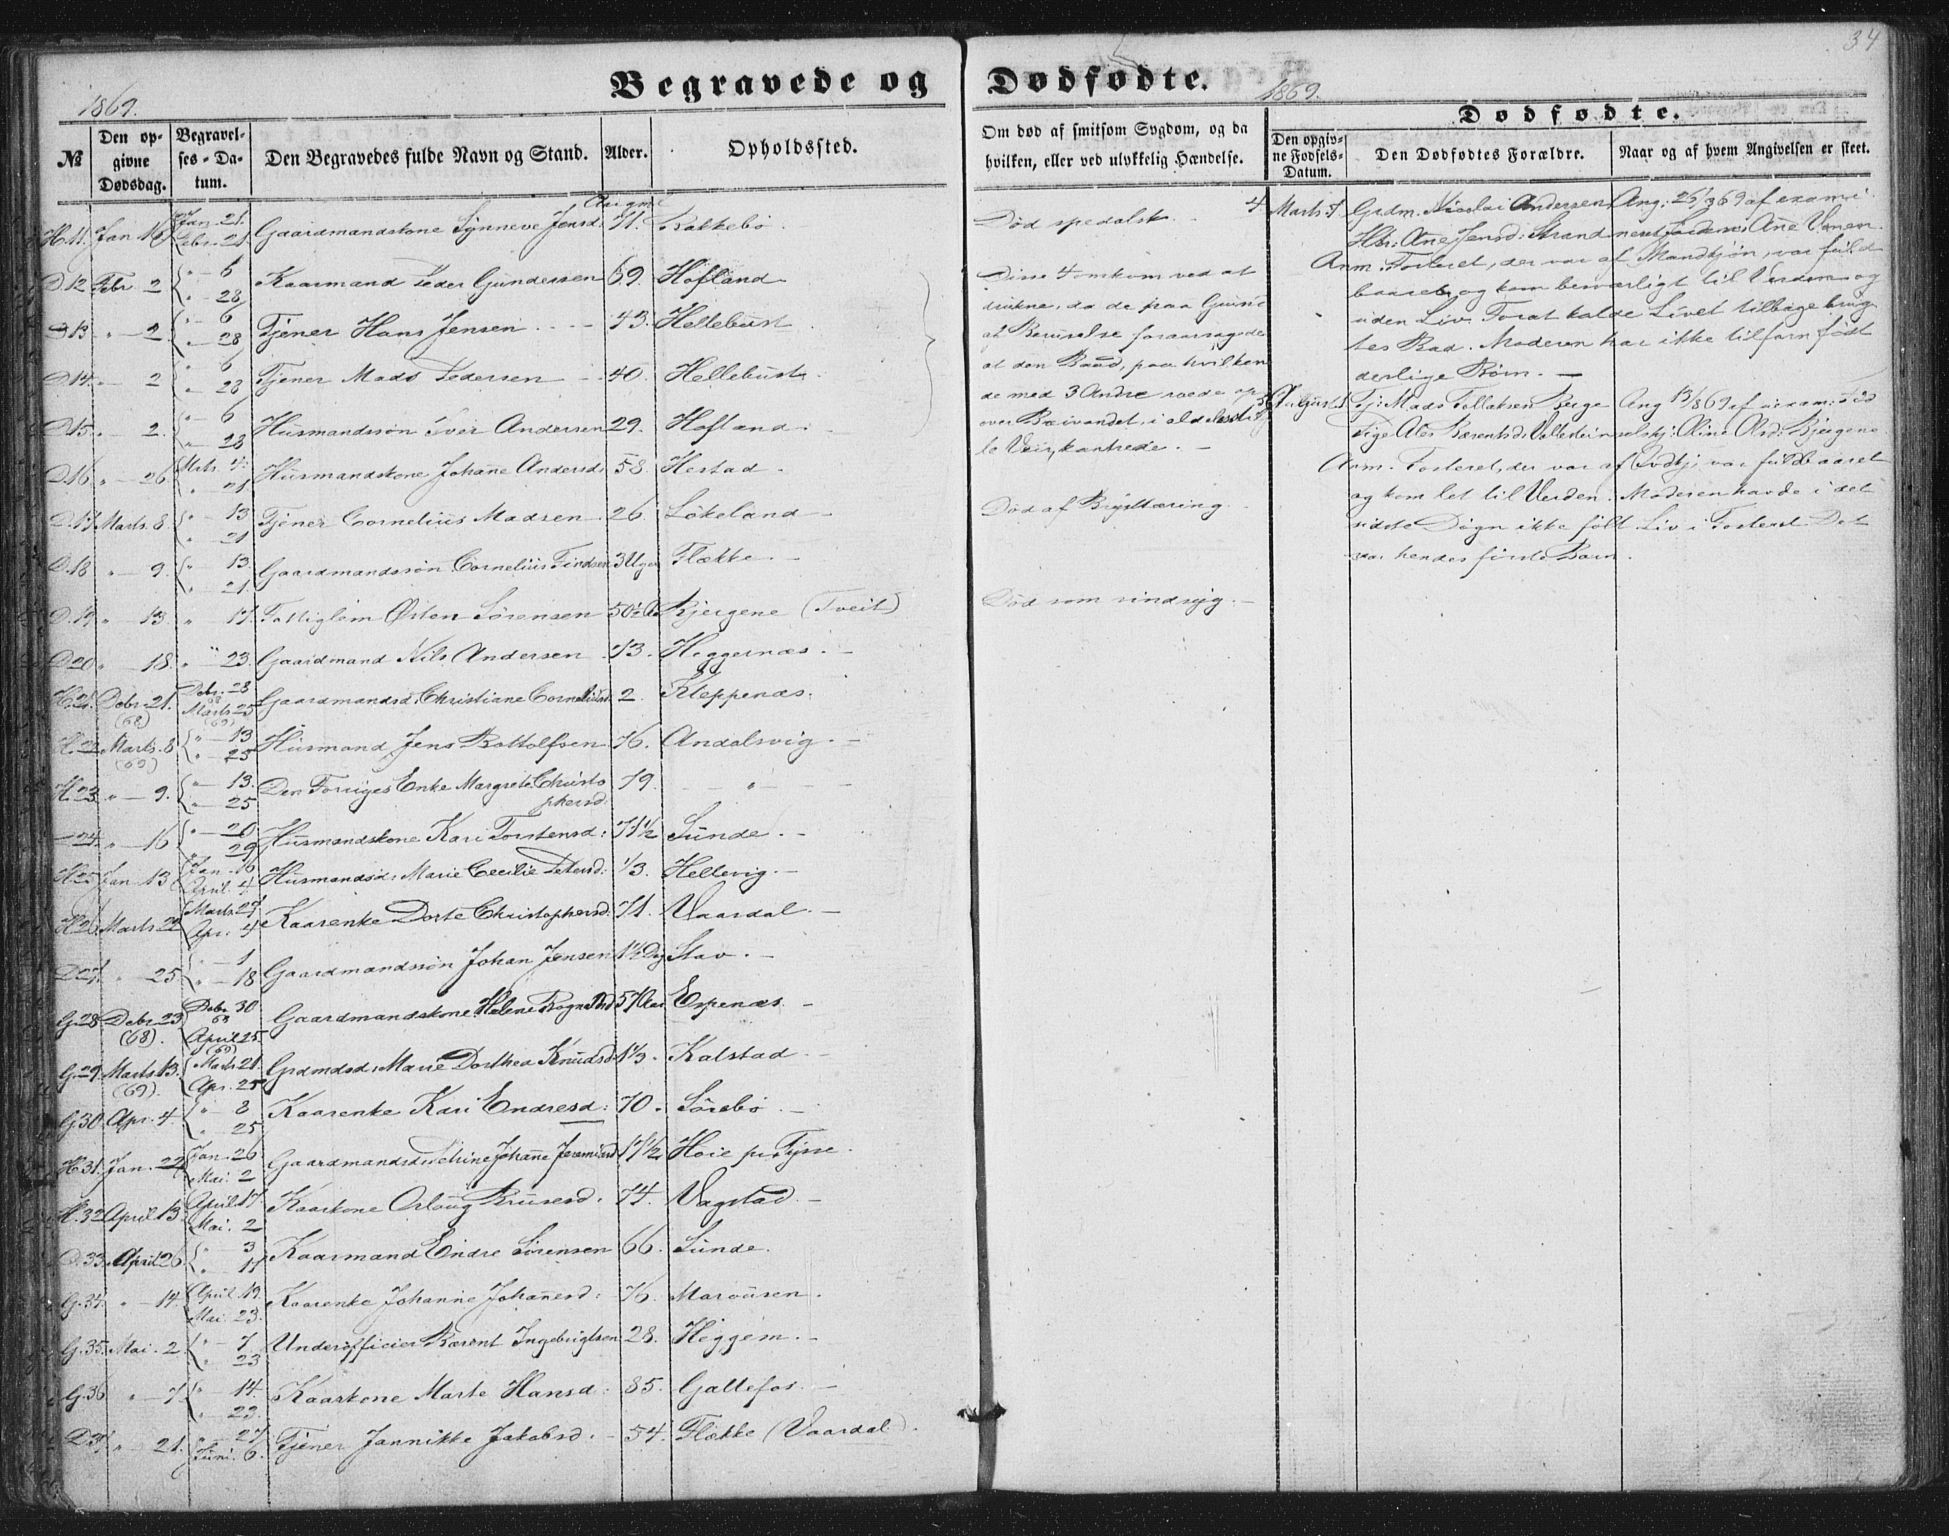 34
Begravede og Dødfødte.
1869.
1869.
№
Den op-
givne
Dødsdag.
Begravel-
ses-Da-
tum.
Den Begravedes fulde Navn og Stand.
Alder.
Opholdssted.
Om død af smitsom Sygdom, og da
hvilken, eller ved ulykkelig Hændelse.
Dødfødte.
Den opgiv-
ne Fødsels-
Datum.
Den Dødfødtes Forældre.
Naar og af hvem Angivelsen er skeet.
H.11. Jan 16 Jan. 21. Febr. 21 Gaardmandskone Synneve Jensd. 71. Rakkebø
D12 Febr 2 " 6 " 28 Kaarmand Peder Gundersen 69. Hofland
D13. " 2 " 6 " 28 Tjener Hans Jensen 43. Hellebust
D14. " 2 " 6 " 28 Tjener Mads Pedersen 40. Hellebust.
D15. " 2. " 6 " 28 Husmandssøn Iver Andersen 29. Hofland.
D16 " 26 Mrts 4. " 21 Husmandskone Johane Andersd: 58. Hestad.
D.17 Marts 8 " 13 " 21 Tjener Cornelius Madsen 26. Løkeland
D.18 " 9. " 13. " 21. Gaardmandssøn Cornelius 3 Uger Flekke.
D.19 " 13 " 17. Fattiglem Østen Sørensen 50½ Bjergene (Tveit)
D20 " 18. " 23. Gaardmand Nils Andersen 73. Heggernæs.
H.21. Debr. 21. (68) Debr. 28 68 Marts 25 (69) Gaardmandsd: Christiane 2. Kleppenæs.
H.22 Marts 8 (69) " 13 " 25 Husmand Jens Bottolfsen 76. Andalsvig.
H.23. " 9. " 13. " 25 Den Forriges Enke Margrete Christophersd. 79. "
24. " 16 " 20 " 29 Husmandskone Kari Torstensd: 71½ Sunde.
H25 Jan 13 Jan. 16 April. 4. Husmandsd: Marie Cecilie Petersd: 1/3. Hellevig.
H26 Marts 22 Marts 27 Apr. 4 Kaarenke Dorte Christophersd: 71. Vaardal.
D27. " 25 " 1 " 18 Gaardmandssøn Johan Jensen Stav.
G.28 Debr. 23 (68). Debr 30 68 April 25. (69) Gaardmandskone Helene 57 Aar Espenæs.
G.29 Marts 13. (69). Marts 21. Apr. 25 Grdmdsd: Marie Dorthea Knudsd 1⅓. Kalstad.
G.30 Apr. 4. " 8 " 25 Kaarenke Kari Endresd: 70. Sørebø.
H.31. Jan. 22 Jan. 26 Mai. 2 Gaardmandsd: Johane 17½ Høie pr Tysse.
H.32 April 13. April 17 Mai. 2 Kaarkone Orloug 74. Vagstad.
D.33. April 26. " 3 " 11 Kaarmand Endre Sørensen 66. Sunde.
G.34. " 14. April. 19. Mai. 23. Kaarenke Johanne Johanesd: 76. Marousen.
G.35. Mai. 2 " 7 " 23 Underofficier Bærent Ingebrigtsen 28. Heggem.
G.36 " 7 " 14. " 23. Kaarkone Marte Hansd: 85. Gallefos.
D.37 " 21. " 27 Juni. 6. Tjener Jannikke Jakobsd. 54. Flekke (Vaardal).
Død spedalsk.
Disse 4 omkom ved at
drukne, da de paa Grund
af Beruselse foraarsagede
at den Baad, paa hvilken
de med 3 Andre roede
over i
le Veir, kantrede.
Død af Brysttæring.
Død som sindsyg.
4 Marts Grdm. Nicolai Andersen Ang: 25/3 69 af exami:
Hst: Ane Jensd: Strand
Anm: Fosteret, der var af Mandkjøn, var fuld
baaret, og kom besværligt til Verden og
uden Liv. For at kalde Livet tilbage brug
tes Bad. Moderen har ikke tilforn født
derlige Børn.
August Tj: Mads Ang 13/8 69 af
Pige Ales Bærentsd: Oline Olsd: Bjergene
Anm. Fosteret, der var af var fuldbaaret
og kom let til Verden. Moderen havde i det
sidste Døgn ikke følt Liv i Fosteret. Det
var hendes første Barn.